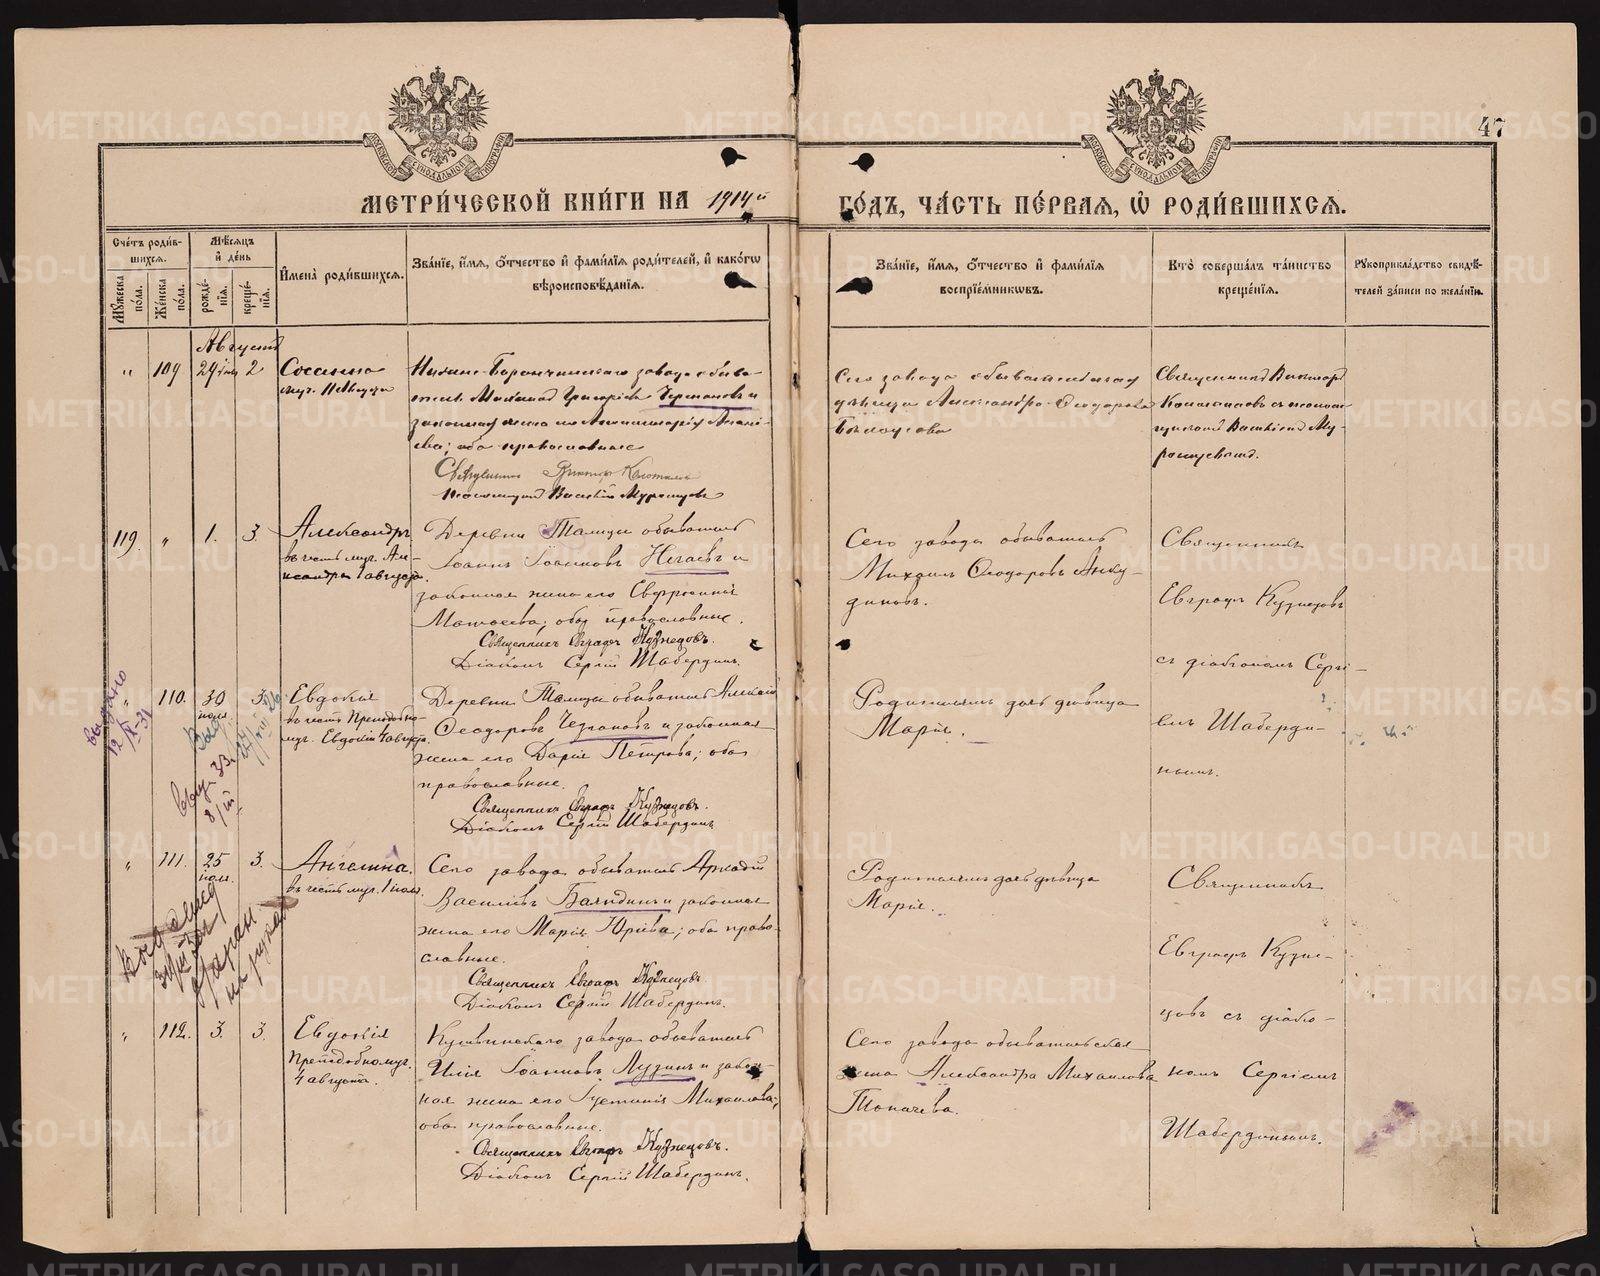 47
МЕТРИ́ЧЕСКОЙ КНИ́ГИ НА 1914й ГО́ДЪ, ЧА́СТЬ ПЕ́РВАЯ, Ѡ РОДИ́ВШИХСЯ.
Сче́тъ роди́вшихся.
Мꙋжеска по́ла.
Же́нска по́ла.
Мѣ́сяцъ и̂ де́нь
рожде́нїя.
креще́нїя.
И̂мена̀ роди́вшихся.
Зва́нїе, и̂́мя, ѻ̂́тчество и̂ фами́лїя роди́телей, и̂ како́гѡ вѣроисповѣ́данїя.
Зва́нїе, и̂́мя, ѻ̂́тчество и̂ фами́лїя воспрїе́мниковъ.
Кто̀ соверша́лъ та́инство креще́нїя.
Рꙋкоприкла́дство свидѣ́телей за́писи по жела́нїю.
Августъ
" 109 29 2
Сосанна
Нижне-Баранчинскаго завода обыва-
законная жена его
ева; оба православные
Священникъ Викторъ
Псаломщикъ Василій Мурашцовъ
Сего завода обывательская
дѣвица Александра Ѳеодорова
Бѣлоусова
Священникъ Викторъ
Василій Му-
119. " 1. 3.
Александръ
въ честь муч. Але-
ксандра 1 августа.
Деревни Талицы обыватель
Іоаннъ Іоанновъ Нечаевъ и
законная жена его Евфросинія
Матѳеева; оба православные.
Священникъ Евграфъ Кузнецовъ.
Діаконъ Сергій Шабердинъ.
Сего завода обыватель
Михаилъ Ѳеодоровъ Анку-
диновъ.
Священникъ
Евграфъ Кузнецовъ
съ діакономъ Сергі-
емъ Шаберди-
нымъ.
" 110. 30 июля. 3.
Евдокія
въ честь Преподобно-
муч. Евдокіи 4 августа.
Деревни Талицы обыватель Алексій
Ѳеодоровъ и законная
жена его Дарія Петрова; оба
православные.
Священникъ Евграфъ Кузнецовъ.
Діаконъ Сергій Шабердинъ
Родителямъ дочь дѣвица
Марія.
выдано
12/X-31
" 111. 25 июля. 3.
Ангелина.
въ честь муч. 1 июля.
Сего завода обыватель Аркадій
Василіевъ Баландинъ и законная
жена его Марія Юріева; оба право-
славные.
Священникъ Евграфъ Кузнецовъ.
Діаконъ Сергій Шабердинъ.
Родителямъ дочь дѣвица
Марія.
Священникъ
Евграфъ Кузне-
цовъ съ діако-
номъ Сергіемъ
Шабердинымъ.
" 112. 3. 3.
Евдокія
Преподобномуч.
4 августа.
Кушвинскаго завода обыватель
Илія Іоанновъ Лузинъ и закон-
ная жена его Іустинія Михаилова;
оба православные.
Священникъ Евграфъ Кузнецовъ.
Діаконъ Сергій Шабердинъ.
Сего завода обывательская
жена Александра Михаилова
Топачева.
METRIKI.GASO-URAL.RU